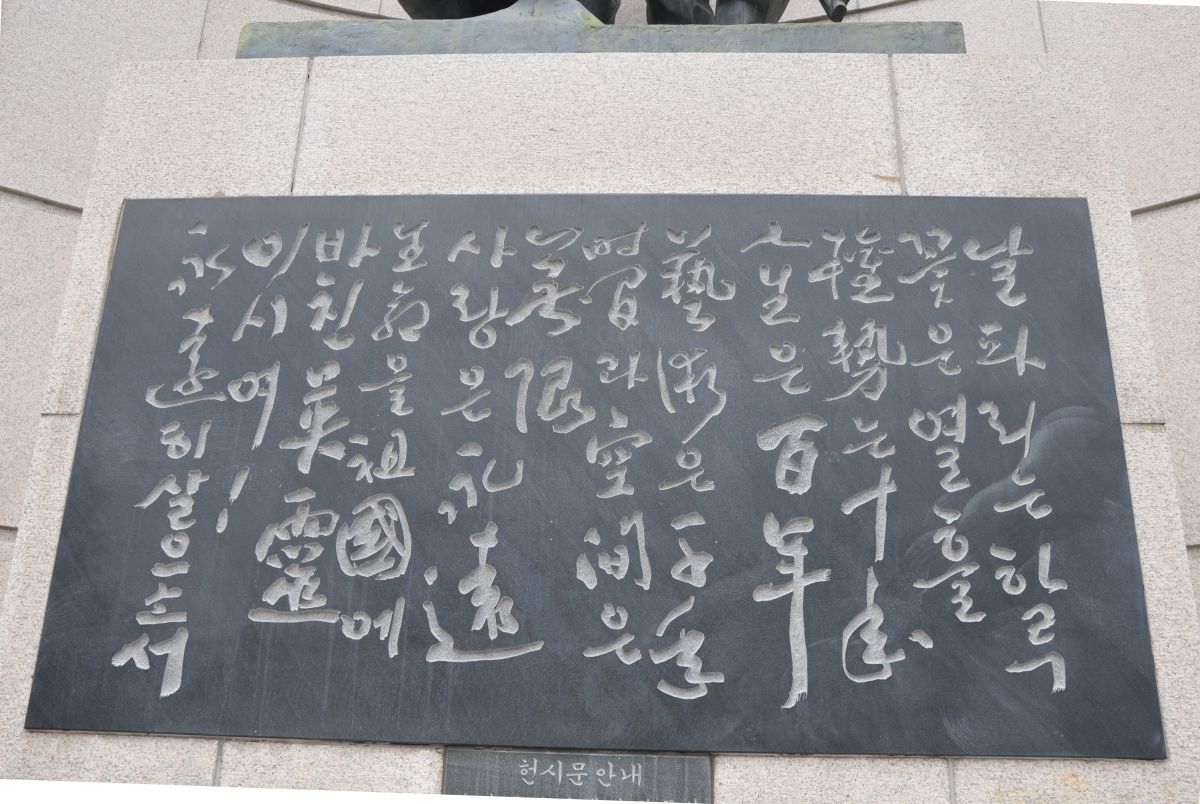 날파리는 하루
꽃은 열흘
權勢는 十年
人生은 百年
藝術은 千年
時間과 空間은
無限
사랑은 永遠
生命을 祖國에
바친 英靈
이시여!
永遠히 살으소서
헌시문 안내